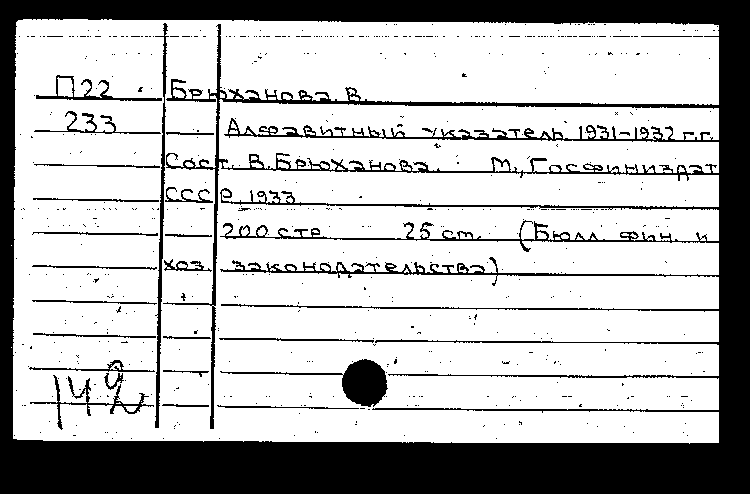 П22 Брюханова В.
233 Алфавитный указатель 1931-1932 г.г.
Сост. В. Брюханова. М., Госфиниздат
СССР, 1933
200 стр 25 cm. (Бюлл. фин. и
хоз. законодательства)
142